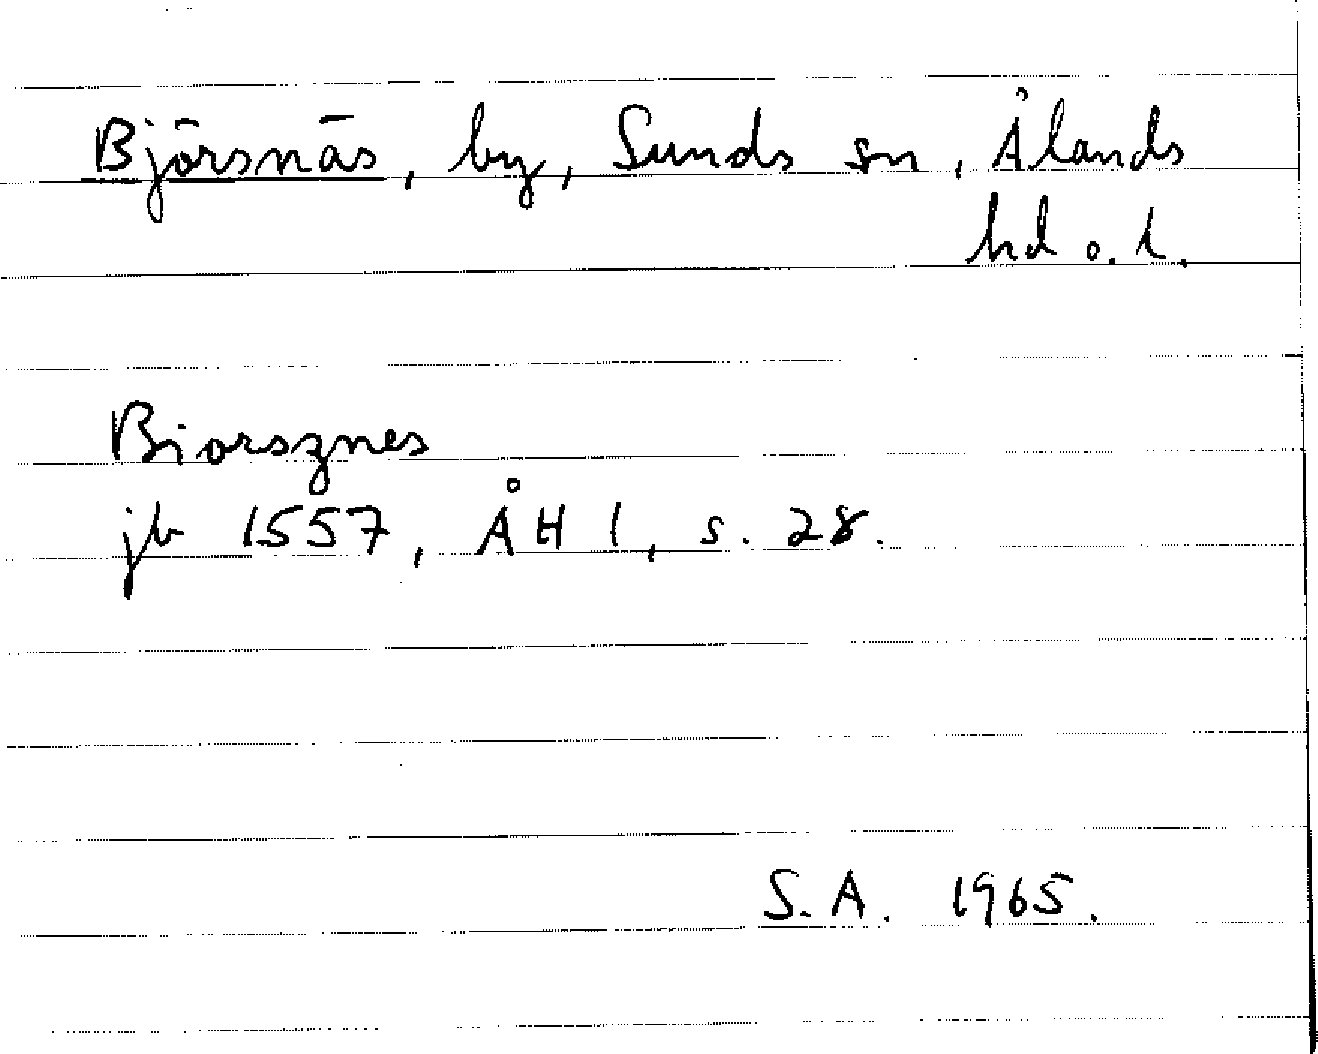 Björsnäs, by, Sunds sn, Ålands
hd o. l.
Biorsznes
jb 1557, ÅH I, s. 28.
S.A. 1965.